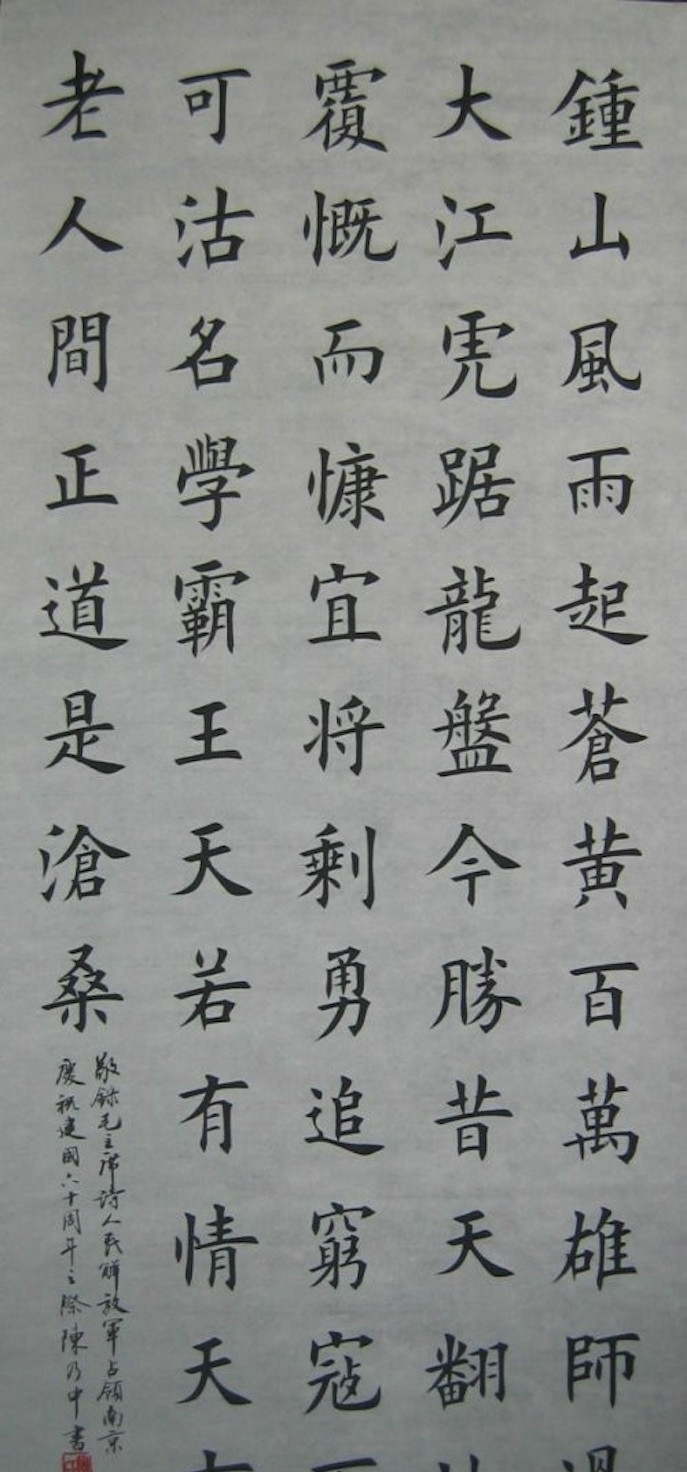 鍾山風雨起蒼黃百萬雄師過
大江虎踞龍盤今勝昔天翻
覆慨而慷宜将剩勇追窮寇
可沽名學霸王天若有情天
老人間正道是滄桑
敬錄毛主席詩人民解放軍占領南京
慶祝建國六十周年之際陳乃中書